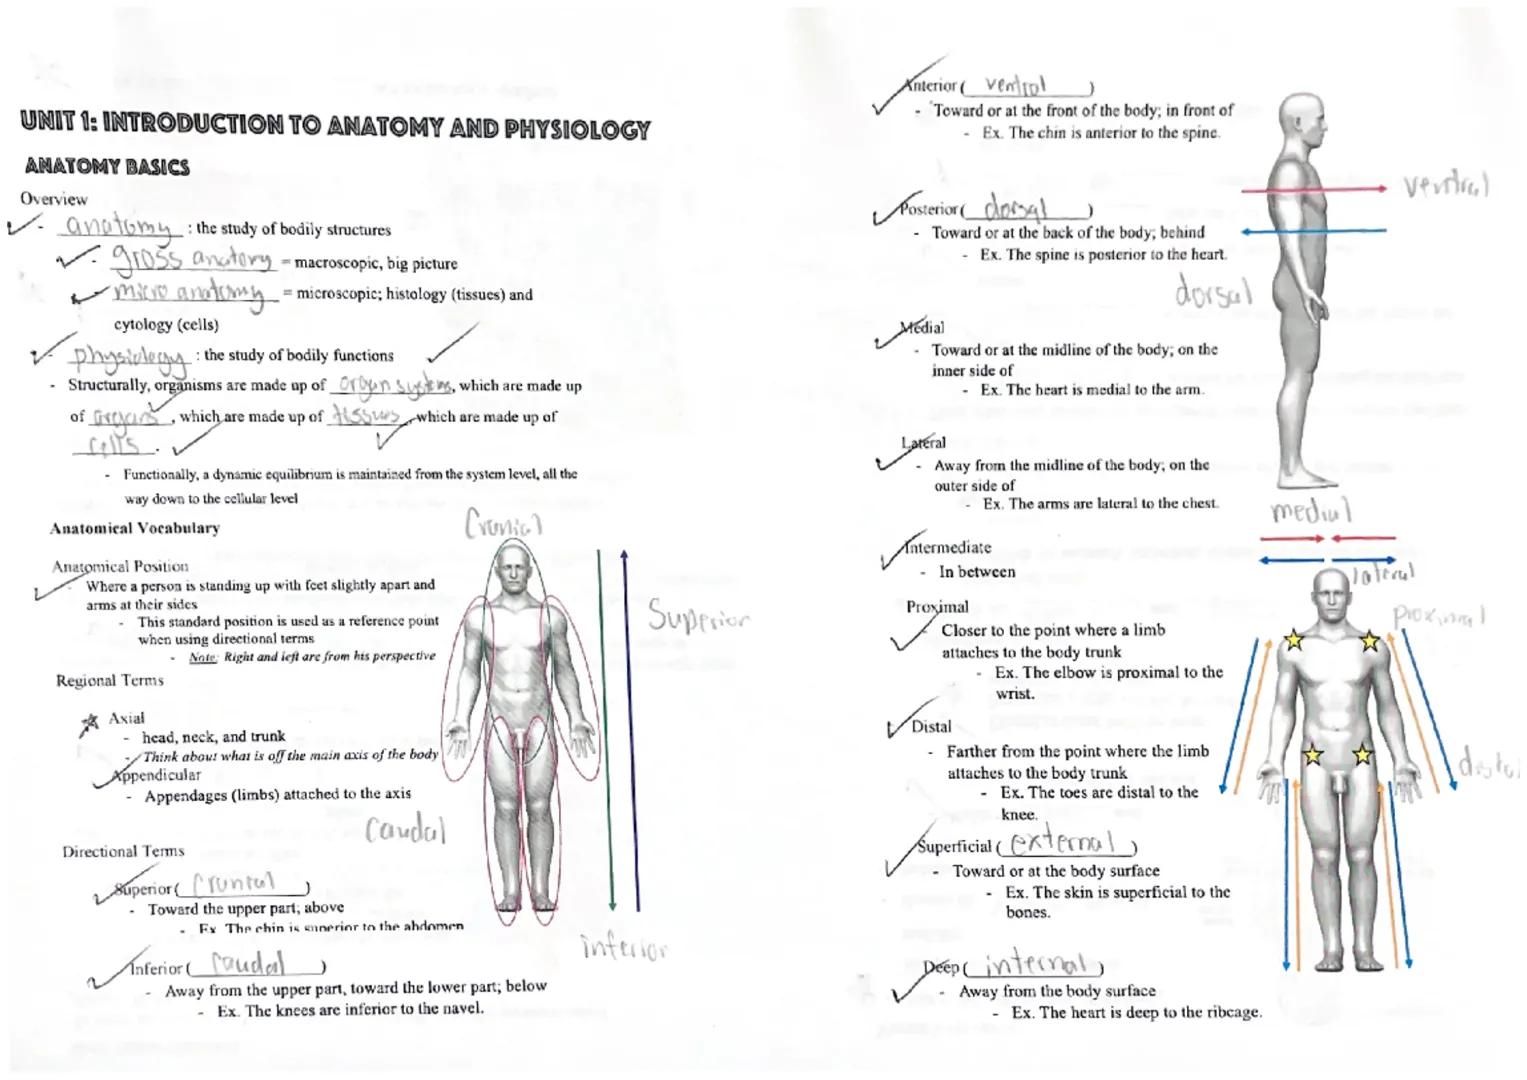 UNIT 1: INTRODUCTION TO ANATOMY AND PHYSIOLOGY
ANATOMY BASICS
Overview
- anatomy : the study of bodily structures
- gross anatomy = macroscopic, big picture
- micro anatomy = microscopic; histology (tissues) and
cytology (cells)
- physiology : the study of bodily functions
- Structurally, organisms are made up of organ systems, which are made up
of organs, which are made up of tissues, which are made up of
cells.
- Functionally, a dynamic equilibrium is maintained from the system level, all the
way down to the cellular level
Anatomical Vocabulary
Anatomical Position
- Where a person is standing up with feet slightly apart and
arms at their sides
- This standard position is used as a reference point
when using directional terms
- Note: Right and left are from his perspective
Regional Terms
Axial
- head, neck, and trunk
- Think about what is off the main axis of the body
Appendicular
- Appendages (limbs) attached to the axis
Directional Terms
Superior ( )
- Toward the upper part; above
- Ex. The chin is superior to the abdomen
Inferior ( caudal )
- Away from the upper part, toward the lower part; below
- Ex. The knees are inferior to the navel.
Cranial
Superior
Caudal
inferior
Anterior ( ventral )
- Toward or at the front of the body; in front of
- Ex. The chin is anterior to the spine.
Posterior ( dorsal )
- Toward or at the back of the body; behind
- Ex. The spine is posterior to the heart.
Medial
- Toward or at the midline of the body; on the
inner side of
- Ex. The heart is medial to the arm.
Lateral
- Away from the midline of the body; on the
outer side of
- Ex. The arms are lateral to the chest.
Intermediate
- In between
Proximal
Closer to the point where a limb
attaches to the body trunk
- Ex. The elbow is proximal to the
wrist.
Distal
- Farther from the point where the limb
attaches to the body trunk
- Ex. The toes are distal to the
knee.
Superficial ( external )
- Toward or at the body surface
- Ex. The skin is superficial to the
bones.
Deep ( internal )
- Away from the body surface
- Ex. The heart is deep to the ribcage.
ventral
dorsal
medial
lateral
proximal
distal